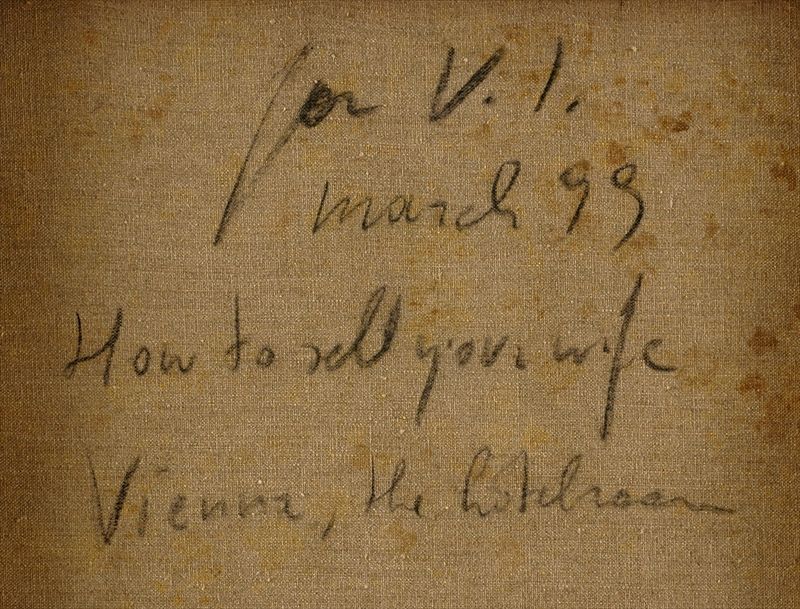 for V. I.
march 99
How to sell your wife
Vienna, the hotelroom